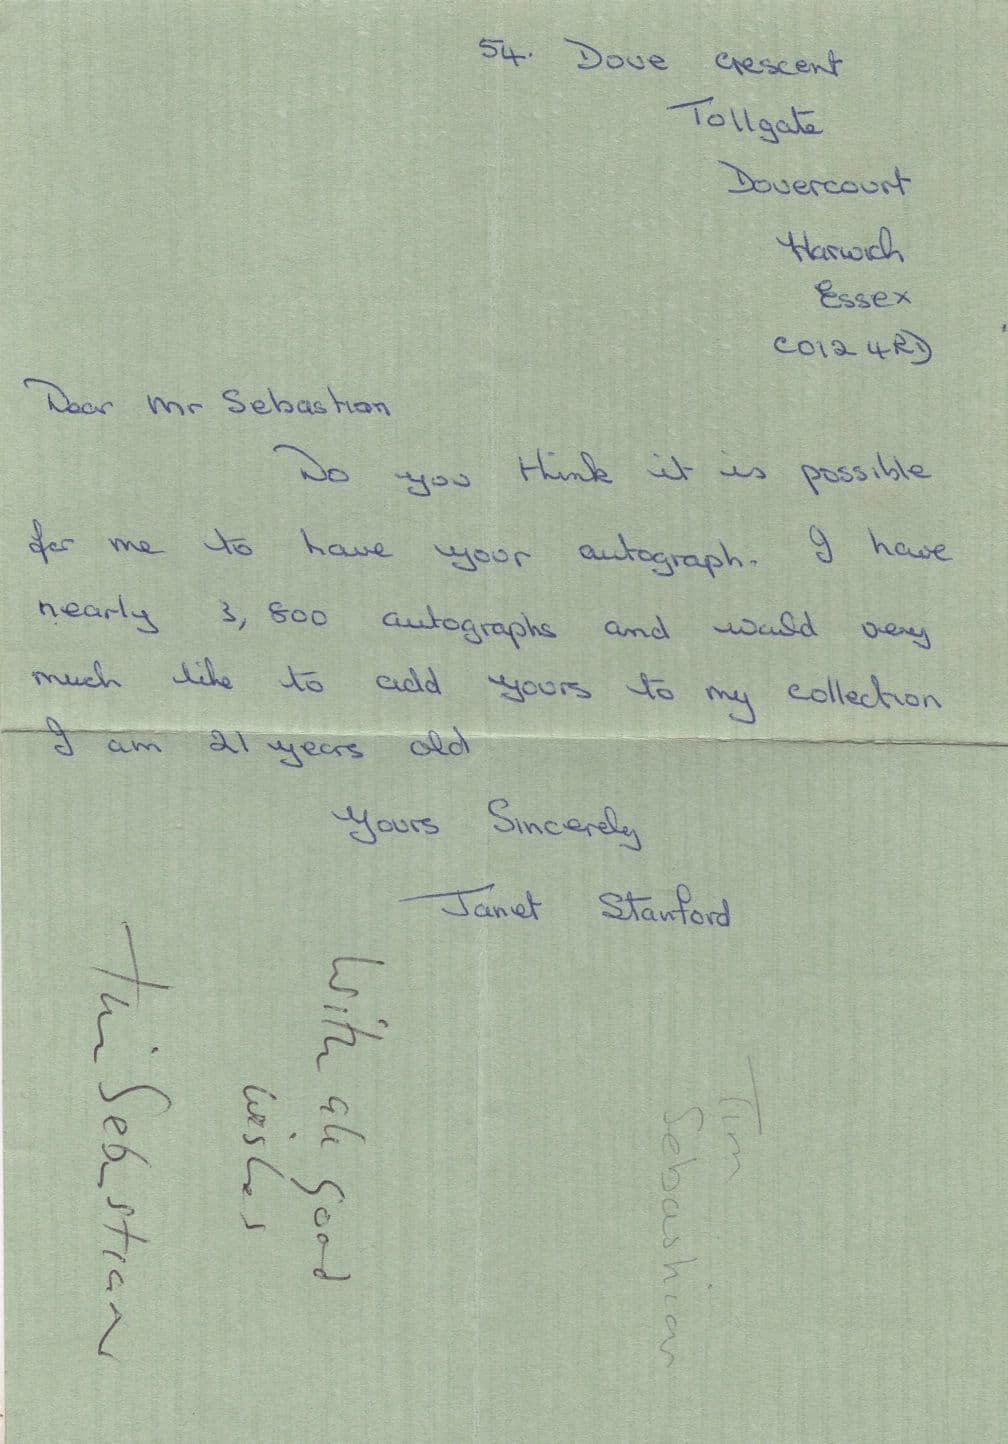 54. Dove Crescent
Tollgate
Dovercourt
Harwich
Essex
CO12 4RD
Dear Mr Sebastian
Do you think it is possible
for me to have your autograph. I have
nearly 3,800 autographs and would very
much like to add yours to my collection
I am 21 years old
Yours Sincerely
Janet Stanford
With all good
wishes
Tim Sebastian
Tim
Sebastian